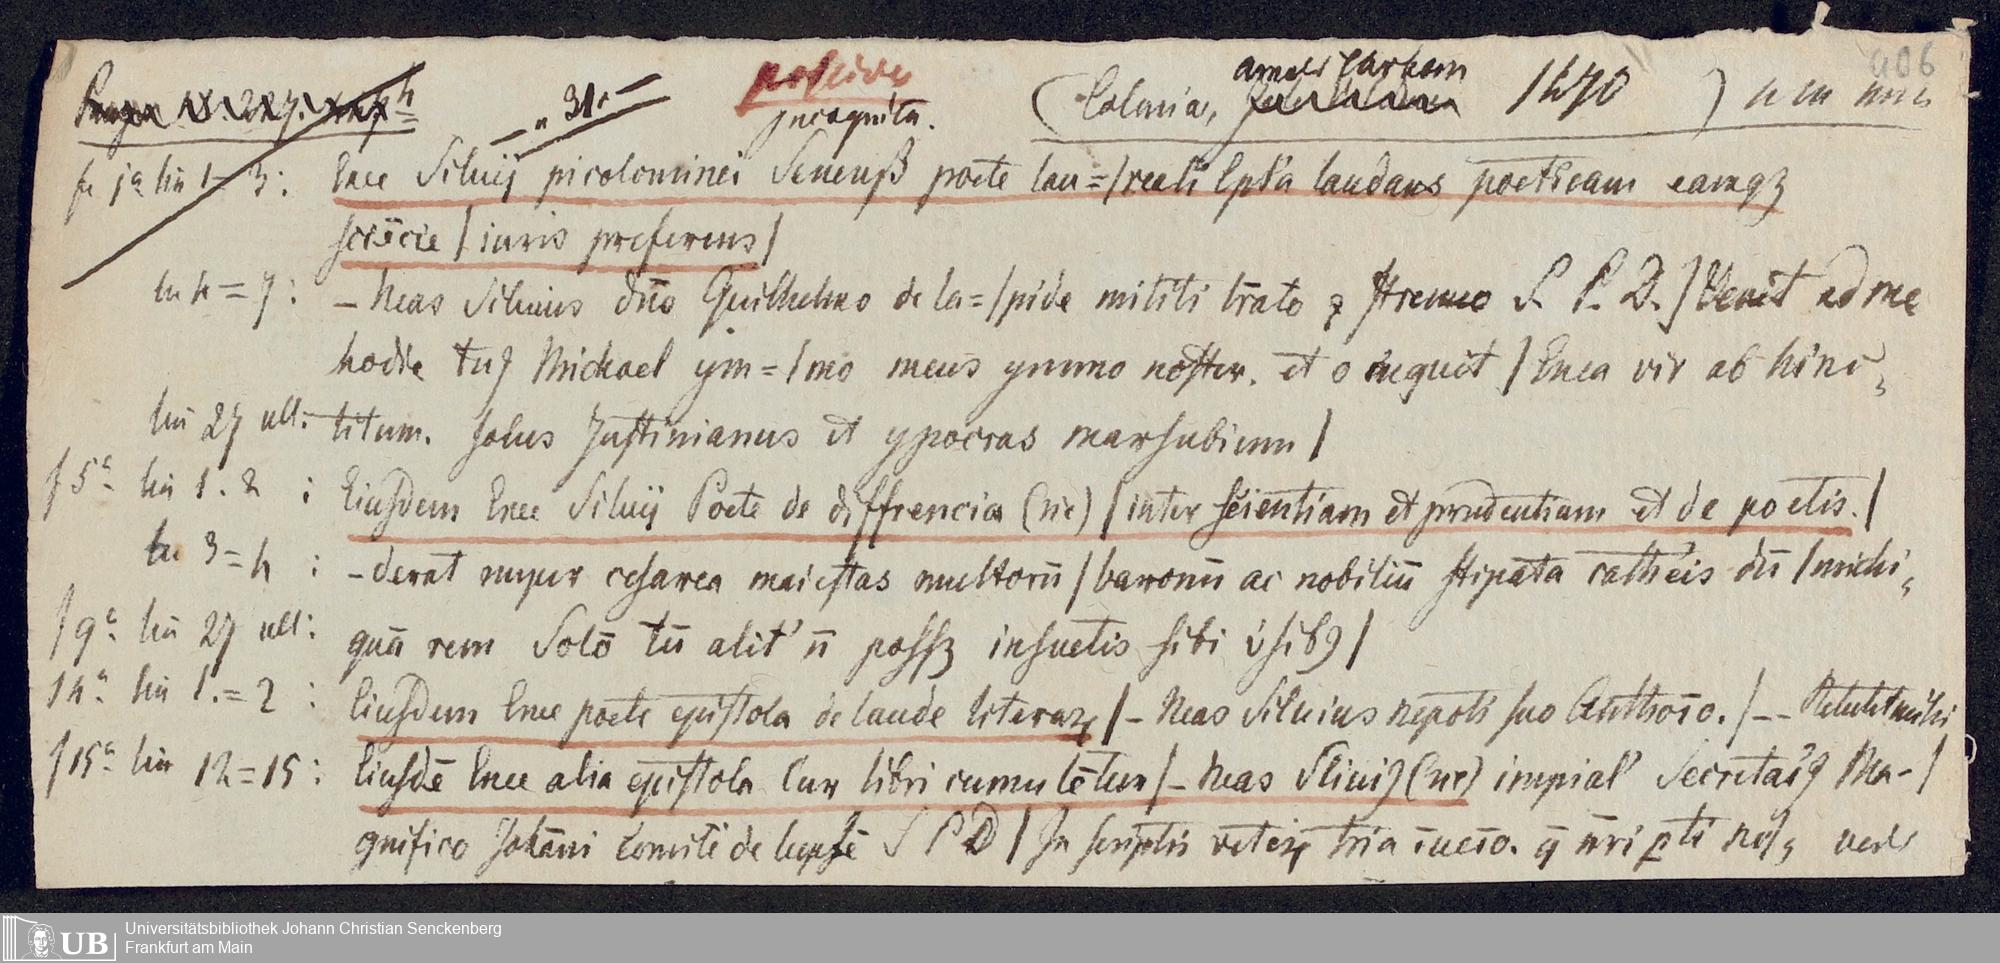 406
Arnoldi
(Colonia, 1470)
" 31.—
incognita.
f 1a lin 1–3: Enee Siluij picolominei Senenß poete lau=/reati Epl'a laudans poeticam eamqꝫ
sciēcie / iuris preferens /
lin 4=7: – Neas Siluius dn̄o Guilhelmo de la=/pide militi l̄rato ⁊ strenuo S. P. D. / Venit ad me
hodie tuꝫ Michael ym=/mo meus ymmo noster. et o inquit / Enea vir ab hinc,
lin 27 ult: titum. solus Justinianus et ypocras marsubium /
f 5a lin 1. 2 : Eiusdem Enee Siluij Poete de diffrencia (sic) / inter scientiam et prudentiam et de poetis. /
lin 3=4 : – derat nuper cesarea maiestas multorū / baronū ac nobiliū stipata cathēis dū / michi,
f 9a lin 27 ult: quā rem Solō tū alit' n̄ possꝫ insuetis sibi v̇sibꝯ /
14a lin 1.=2 : Eiusdem Enee poete epistola de laude literaꝝ / – Neas Siluius nepoti suo Anthōio. / –– Retulit mihi
f 15a lin 12=15 : Eiusdē Enee alia epistola Cur libri cumulētur / – Neas Sliuiꝯ (sic) impial' Secretariꝯ Ma- /
gnifico Johāni Comiti de S P D / In scriptis veteꝝ tria īuēio. q̄ n̄ri